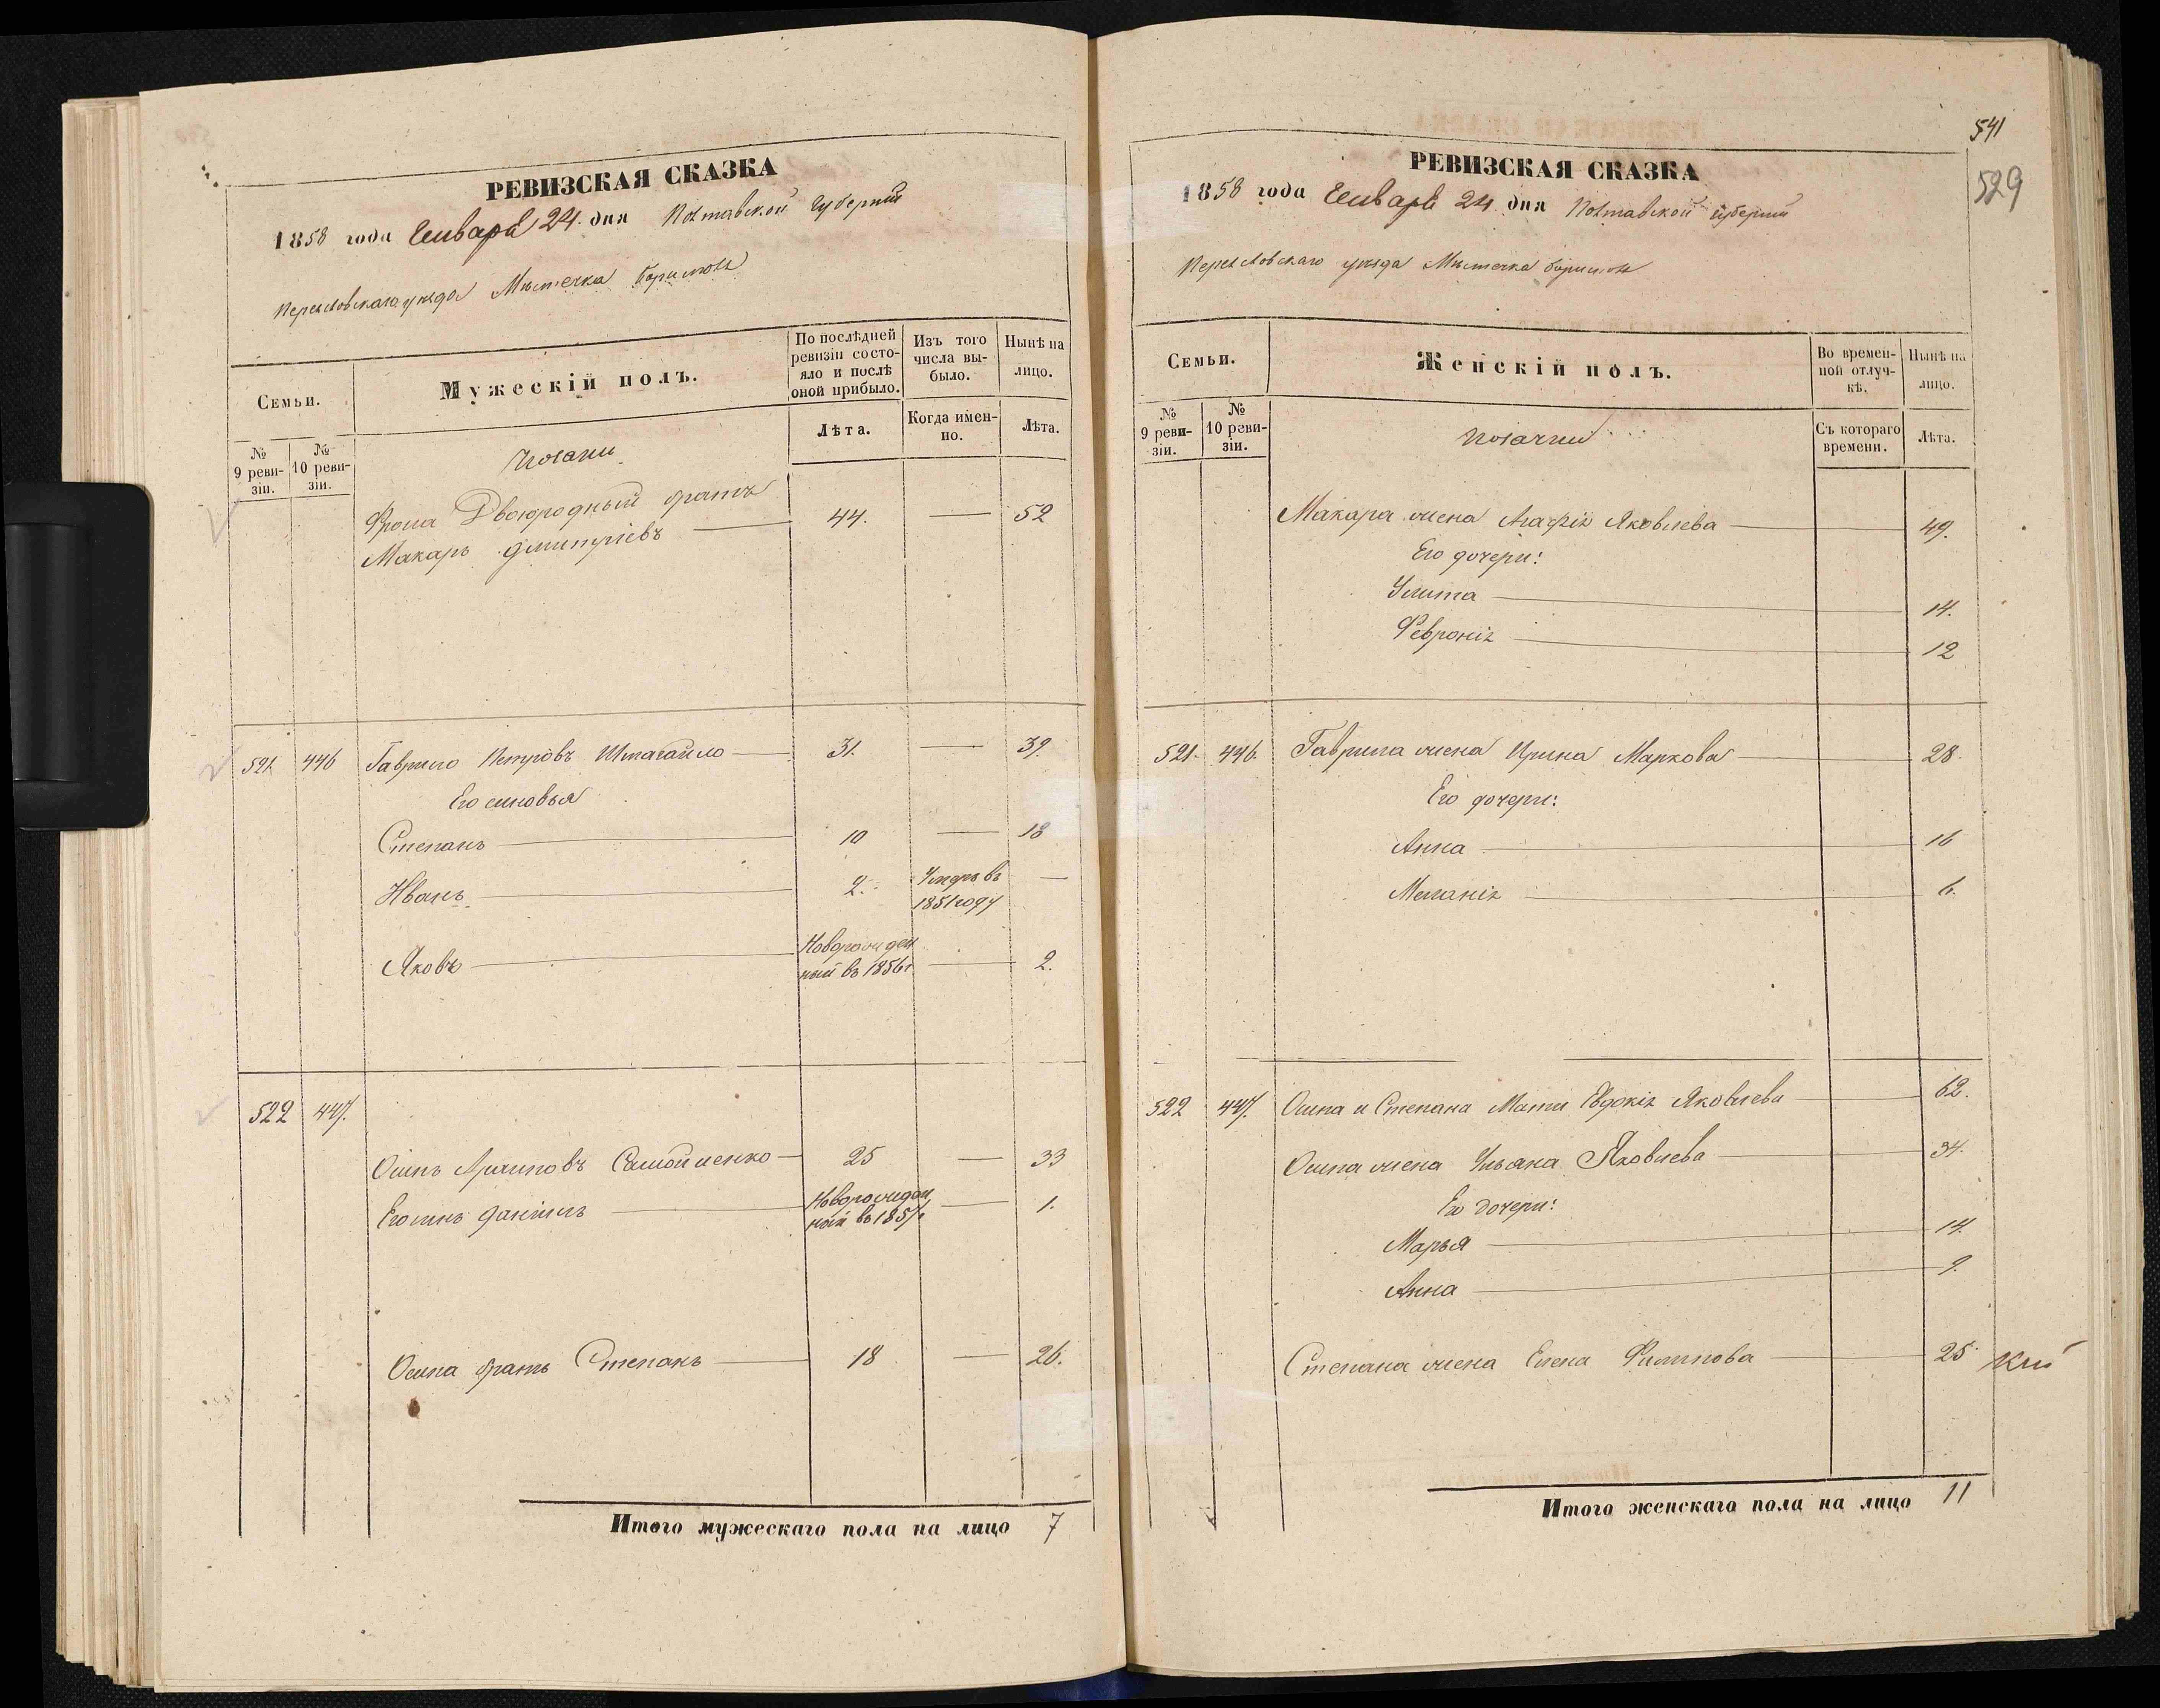 РЕВИЗСКАЯ СКАЗКА
1858 года Генваря 24 дня Полтавской Губерніи
Переяславскаго уѣзда Мѣстечка Борисполя
Семьи.
Мужескій полъ.
По послѣдней ревизіи состояло и послѣ оной прибыло.
Изъ того числа выбыло.
Нынѣ на лицо.
№ 9 ревизіи.
№ 10 ревизіи.
Лѣта.
Когда именно.
Лѣта.
Двоюродный братъ
Макаръ Дмитріевъ 44. — 52
521 446 Гаврило Петровъ 31. — 39.
Его сыновья
Степанъ 10 — 18
Иванъ 2. Умеръ въ 1851 году —
Яковъ Новорожденный въ 1856 г — 2.
522 447.
Осипъ Архиповъ Самойленко 25 — 33
Его сынъ Даніилъ Новорожденный въ 1857 г — 1.
Осипа братъ Степанъ 18 — 26.
Итого мужескаго пола на лицо 7
541
529
РЕВИЗСКАЯ СКАЗКА
1858 года Генваря 24 дня Полтавской губерніи
Переяславскаго уѣзда Мѣстечка Борисполя
Семьи.
Женскій полъ.
Во временной отлучкѣ.
Нынѣ на лицо.
№ 9 ревизіи.
№ 10 ревизіи.
Съ котораго времени.
Лѣта.
Макара жена Агафія Яковлева 49.
Его дочери:
Улита 14.
Февронія 12
521. 446. Гаврила жена Ирина Маркова 28.
Его дочери:
Анна 16
Меланія 6.
522 447. Осипа и Степана Мати Евдокія Яковлева 62.
Осипа жена Ульяна Яковлева 34.
Его дочери:
Марья 14.
Анна 9.
Степана жена Елена Филипова 25
Итого женскаго пола на лицо 11